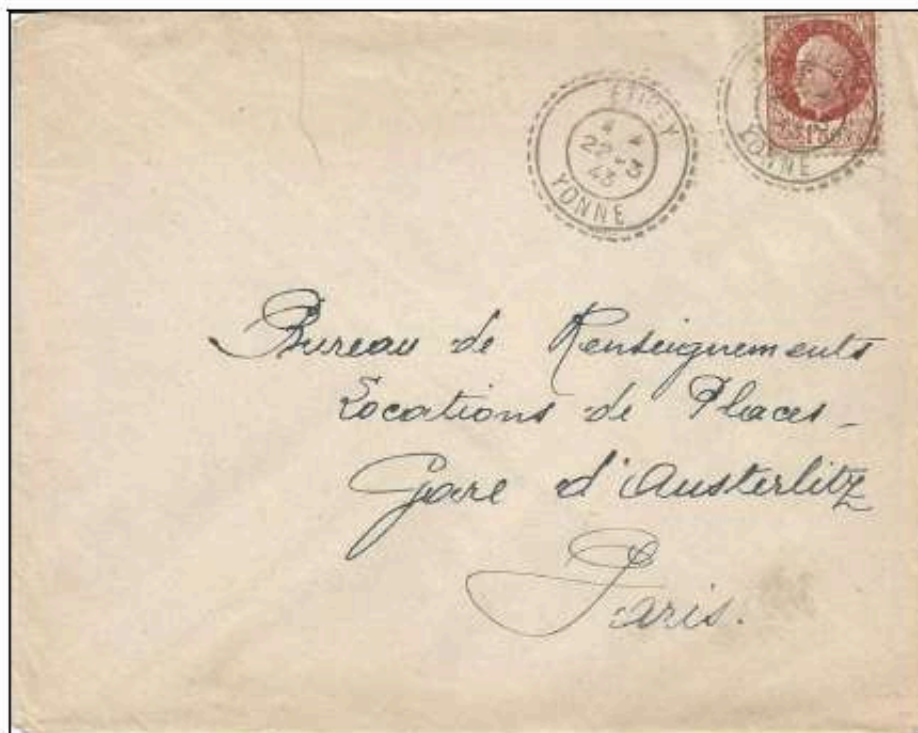 YONNE
22 - 3
43
YONNE
Bureau de Renseignements
Locations de Places -
Gare d'Austerlitz
Paris.